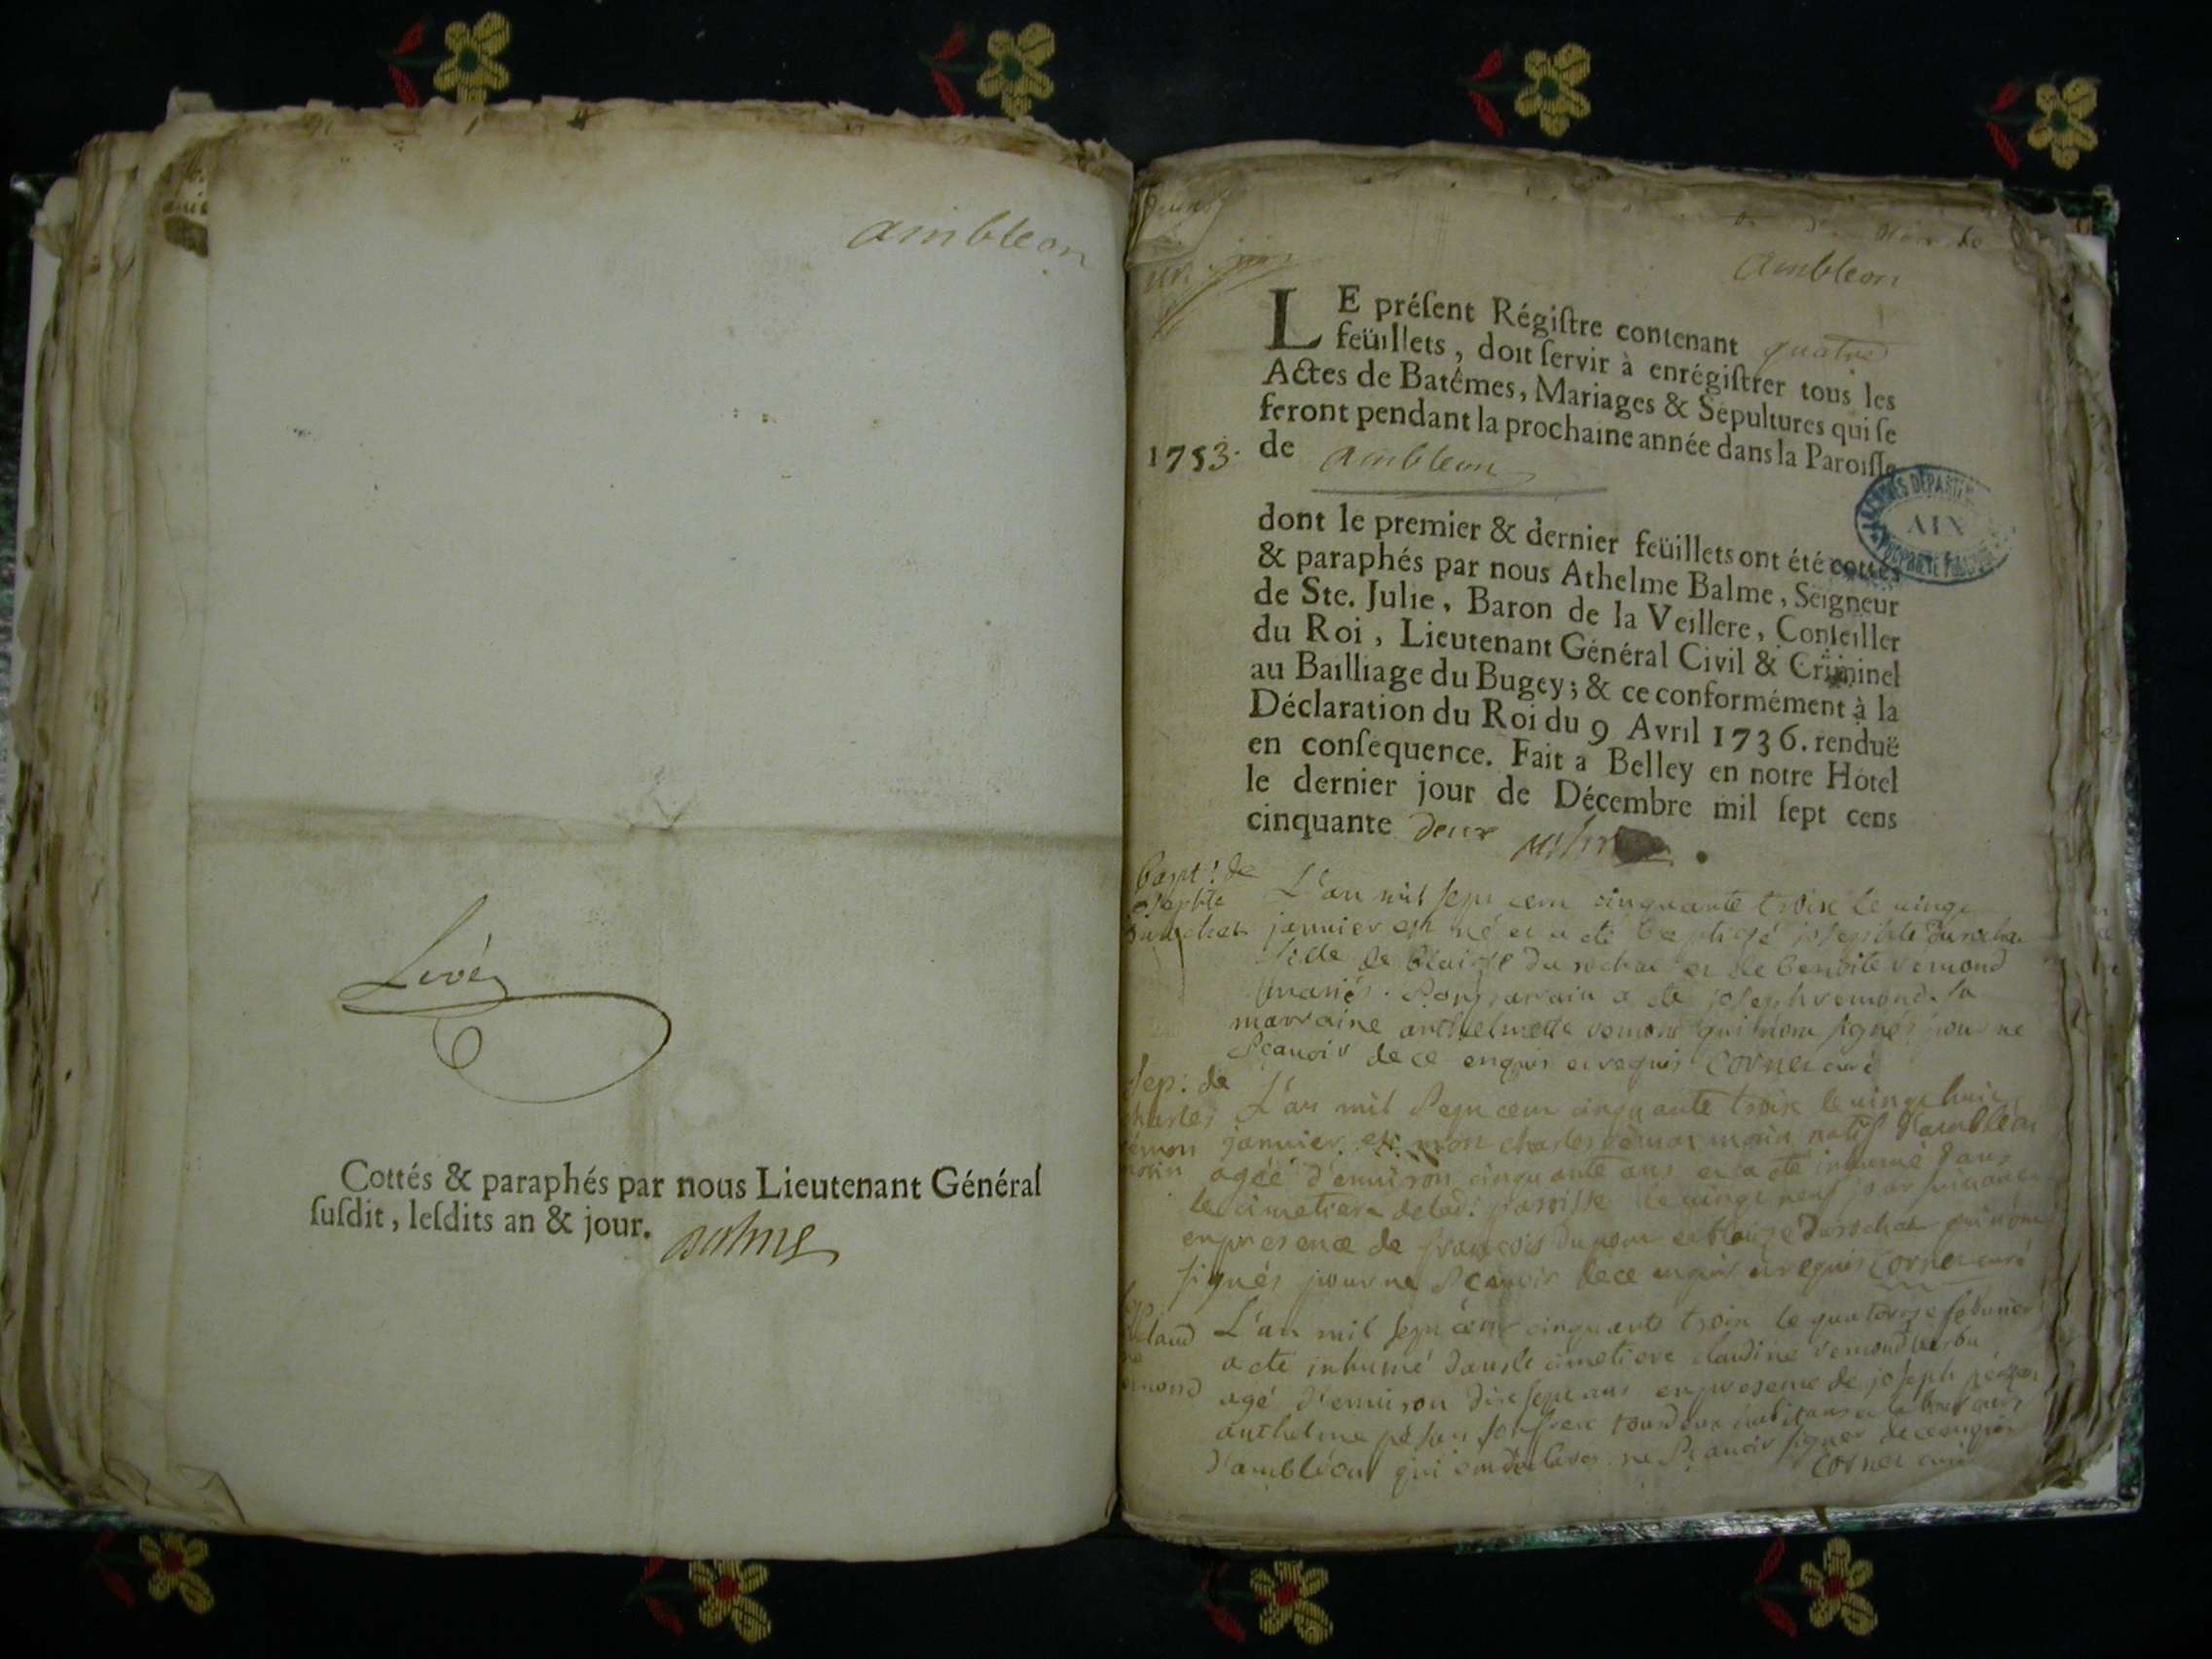 ambleon
Livé
Cottés & paraphés par nous Lieutenant Général
ſuſdit, leſdits an & jour. Balme
un
Ambleon
LE préſent Régiſtre contenant quatre
feüillets, doit ſervir à enrégiſtrer tous les
Actes de Batêmes, Mariages & Sépultures qui ſe
feront pendant la prochaine année dans la Paroiſſe
1753. de Ambleon
ARCHIVES DÉPARTEM
AIN
dont le premier & dernier feüillets ont été cottés
& paraphés par nous Athelme Balme, Seigneur
de Ste. Julie, Baron de la Veillere, Conſeiller
du Roi, Lieutenant Général Civil & Criminel
au Bailliage du Bugey; & ce conformément à la
Déclaration du Roi du 9 Avril 1736. renduë
en conſequence. Fait a Belley en notre Hôtel
le dernier jour de Décembre mil ſept cens
cinquante deux
bapt: de
L'an mil sept cent cinquante troix le vingt
janvier est né et a eté baptizé josephte durochat
fille de blaise du rochat et de benoite vemond
mariés. Son parrain a eté joseph vemond. la
marraine anthelmette vemond qui n'ont signés pour ne
sçavoir de ce enquis et requis Cornet curé
sep: de
charles
L'an mil sept cent cinquante troix le vingt huit
janvier est mort charles natif d'ambleon
agée d'environ cinquante ans et a eté inhumé dans
le cimetiere delad: paroisse le vingt neuf jour suivant
en presence de françois et blaise Durochat qui n'ont
signés pour ne sçavoir de ce enquis et requis Cornet curé
L'an mil sept cent cinquante troix le quatorze febvrier
a eté inhumé dans le cimetiere claudine vemond
agé d'environ dix sept ans en presence de joseph
anthelme son frere tous deux habitans et laboureurs
d'ambléon qui ont declarés ne sçavoir signer de ce enquis
Cornet curé